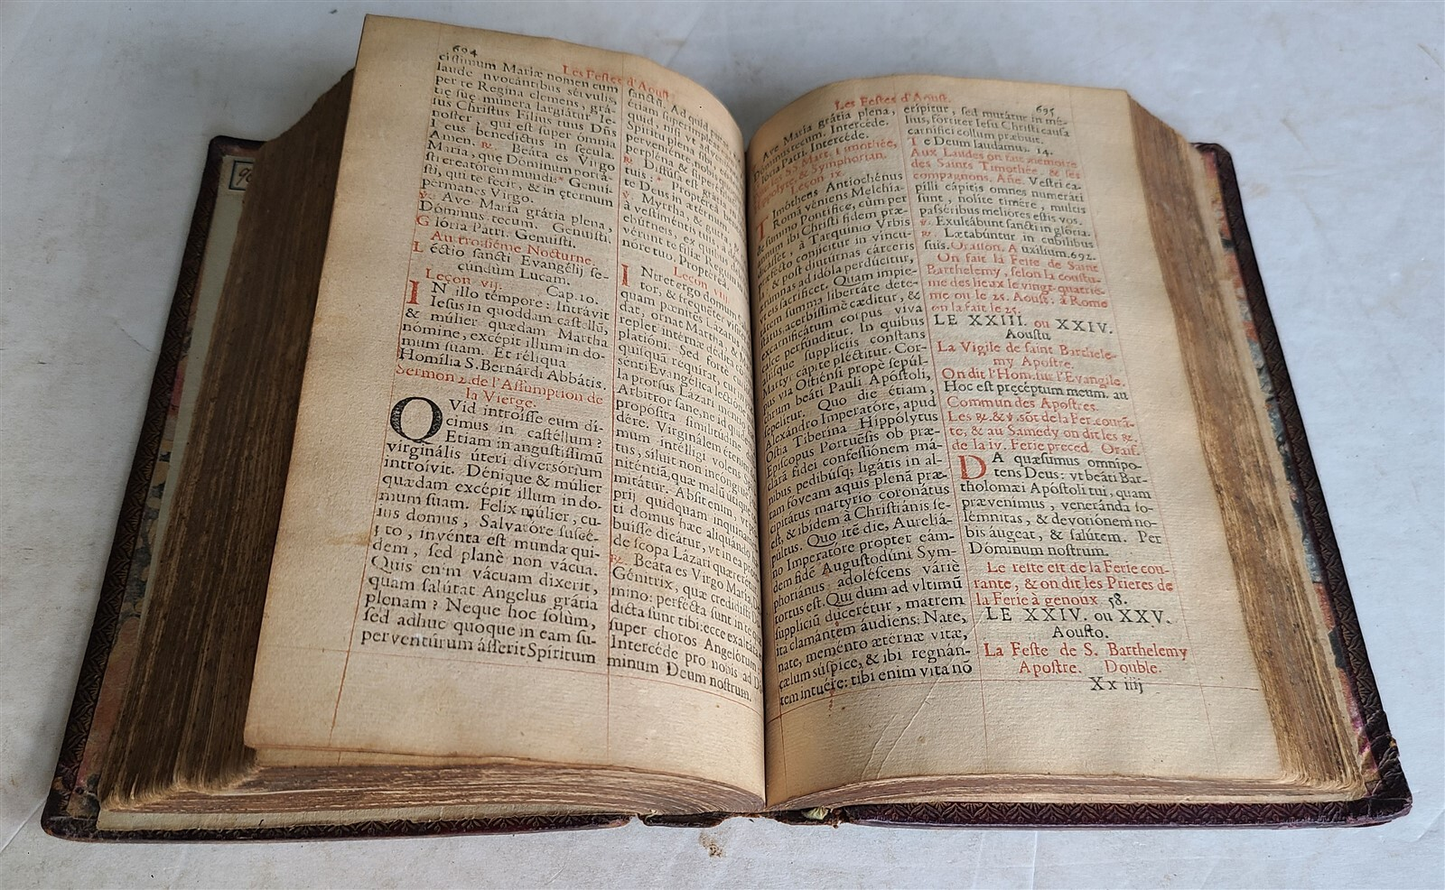 604
Les Festes d'Aoust.
cissimum Mariæ nomen eum
laude nvocántibus sei vulis,
per te Regina clemens, grá-
tiæ suæ múnera largiátur Ie-
sus Christus Fílius tuus Dñs
noster, qui est super ómnia
Deus benedíctus in sęcula.
Amen. ℞. Beáta es Virgo
María, que Dóminum portá-
sti creatórem mundi: * Genuí-
sti, qui te fecit, & in ęternum
pérmanes Virgo.
℣. Ave María grátia plena,
Dóminus tecum. Genuisti.
Glória Patri. Genuísti.
Au troisiéme Nocturne.
Léctio sancti Evangélij se-
cúndùm Lucam.
Leçon vij. Cap. 10.
IN illo témpore: Intrávit
Iesus in quoddam castéllũ,
& múlier quædam Martha
nómine, excépit illum in do-
mum suam. Et réliqua
Homília S. Bernárdi Abbátis.
Sermon 2. de l'Assumption de
la Vierge.
QVid introísse eum dí-
cimus in castéllum?
Etiam in angustíssimũ
virginális úteri diversórium
introívit. Dénique & múlier
quædam excépit illum in do-
mum suam. Felix múlier, cu-
ius domus, Salvatóre suscé-
pto, invénta est munda qui-
dem, sed planè non vácua.
Quis enim vácuam díxerit,
quam salútat Angelus grátia
plenam? Neque hoc solùm,
sed adhuc quoque in eam su-
perventúrum ásserit Spíritum
sancti. Ad quid
étiam super
quid, nisi ut
Spíritu plena
perveniénte,
plena & super
℞.
tuis *
te Deus in
℣. Myrrha, &
à vestiméntis
ebúrneis, ex
núerunt te fíliæ
nóre tuo. Propterea
Leçon viij.
INtret ergo domum
tor, & frequénter
quam pœnitens Lázarus,
dat, ornat Martha, &
replet intérnæ
platióni. Sed forté
quísquã requírat, cur
senti Evangélicæ
la prorsus Lázari
Arbitror sanè, ne id
propósita similitúdine
dére. Virginálem étenim
mum intélligi volens
tus, síluit non incóngruè
niténtiã, quæ malũ útique
mitátur. Absit enim, ut
prij quidquam inquinaménti
ti domus hæc aliquándo
buísse dicátur, ut in ea
de scopa Lázari quærerétur.
℞. Beáta es Virgo María
Génitrix, quæ credidísti
mino: perfécta sunt in te
dicta sunt tibi: ecce exaltáta
super choros Angelórum
Intercéde pro nobis ad Dó-
minum Deum nostrum.
Les Festes d'Aoust. 695
Ave María grátia plena,
Dóminus tecum. Intercéde.
Glória Patri. Intercéde.
S. Timothée,
Hippolyte & Symphorian.
Leçon ix.
TImótheus Antiochénus
Romã véniens Melchía-
de summo Pontífice, cùm per
annum ibi Christi fidem præ-
dicásset, à Tarquínio Vrbis
Præfecto conícitur in víncu-
la, & post diutúrnas cárceris
ærúmnas ad ídola perdúcitur,
ut eis sacrificet. Quam impie-
tátem summa libertáte deté-
stans acerbíssimè cæditur, &
excarnificátum corpus viva
calce perfúnditur. In quibus
aliísque supplíciis constans
Martyr cápite pléctitur. Cor-
pus via Ostiénsi propè sepúl-
crum beáti Pauli Apóstoli,
sepelítur. Quo die étiam,
Alexándro Imperatóre, apud
Ostia Tiberína Hippólytus
Epíscopus Portuésis ob præ-
clarã fidei confessiónem má-
nibus pedibúsq; ligátis in al-
tam fóveam aquis plenã præ-
cipitátus martýrio coronátus
est, & ibídem à Christiánis se-
púltus. Quo itẽ die, Aureliá-
no Imperatóre propter eám-
dem fidẽ Augustodúni Sym-
phoriánus adoléscens váriè
tortus est. Qui dum ad últimũ
supplíciũ ducerétur, matrem
ita clamántem áudiens: Nate,
nate, meménto ætérnæ vitæ,
cælum súspice, & ibi regnán-
tem intuére: tibi enim vita nõ
erípitur, sed mutátur in mé-
lius, fórtiter Iesu Christi causa
carnífici collum præbuit.
Te Deum laudámus. 14.
Aux Laudes on fait memoire
des Saints Timothée, & ses
compagnons. Añe. Vestri ca-
pílli cápitis omnes numeráti
sunt, nolíte timére, multis
passéribus melióres estis vos.
℣. Exultábunt sancti in glória.
℟. Lætabúntur in cubílibus
suis. Oraison. Auxílium. 692.
On fait la Feste de Saint
Barthelemy, selon la coustu-
me des lieux le vingt-quatrié-
me ou le 25. Aoust. à Rome
on la fait le 25.
LE XXIII. ou XXIV.
Aoustu
La Vigile de saint Barthele-
my Apostre.
On dit l'Hom. sur l'Evangile.
Hoc est præcéptum meum. au
Commun des Apostres.
Les ℟. & ℣. sõt de la Fer. courã-
te, & au Samedy on dit les ℟.
de la iv. Ferie preced. Orais.
DA quæsumus omnípo-
tens Deus: vt beáti Bar-
tholomæi Apóstoli tui, quam
prævenimus, veneránda so-
lémnitas, & devotiónem no-
bis áugeat, & salútem. Per
Dóminum nostrum.
Le reste est de la Ferie cou-
rante, & on dit les Prieres de
la Ferie à genoux 58.
LE XXIV. ou XXV.
Aousto.
La Feste de S. Barthelemy
Apostre. Double.
Xx iiij